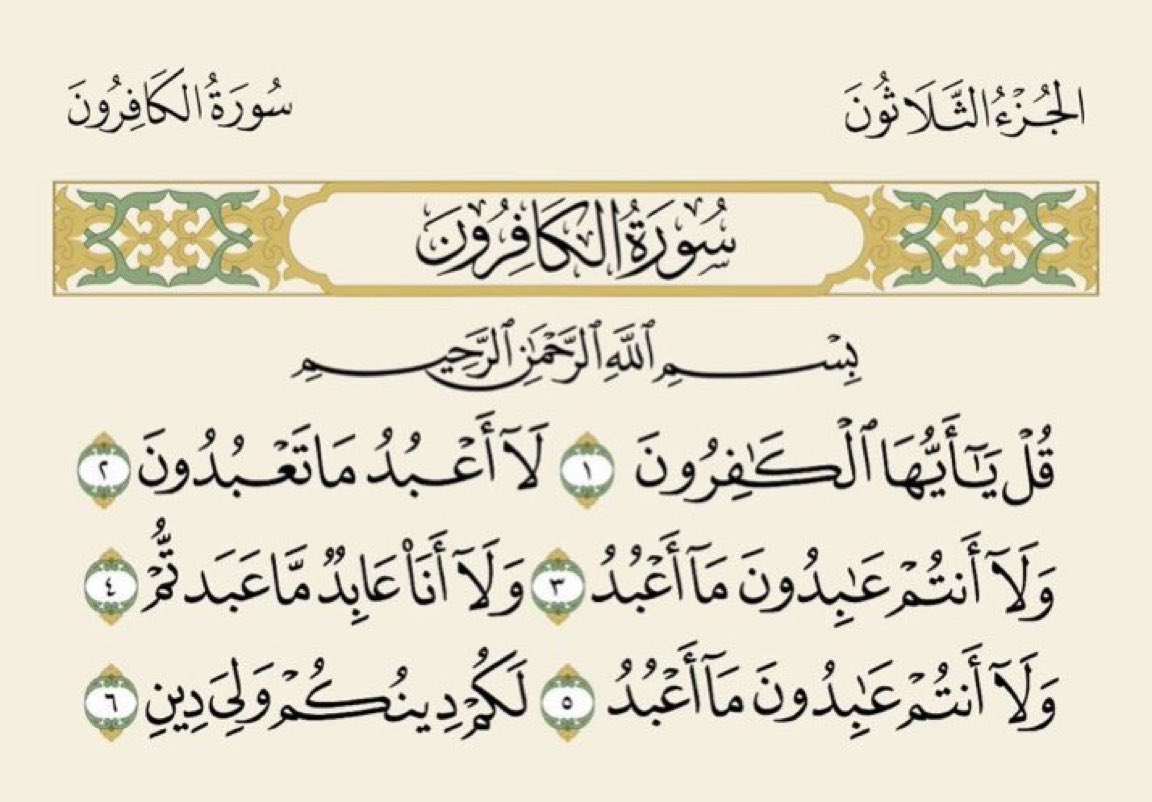 الجُزْءُ الثَّلَاثُونَ سُورَةُ الكَافِرُونَ
سُورَةُ الكَافِرُونَ
بِسْمِ ٱللَّهِ ٱلرَّحْمَٰنِ ٱلرَّحِيمِ
قُلْ يَٰٓأَيُّهَا ٱلْكَٰفِرُونَ ١ لَآ أَعْبُدُ مَا تَعْبُدُونَ ٢
وَلَآ أَنتُمْ عَٰبِدُونَ مَآ أَعْبُدُ ٣ وَلَآ أَنَا۠ عَابِدٌ مَّا عَبَدتُّمْ ٤
وَلَآ أَنتُمْ عَٰبِدُونَ مَآ أَعْبُدُ ٥ لَكُمْ دِينُكُمْ وَلِىَ دِينِ ٦